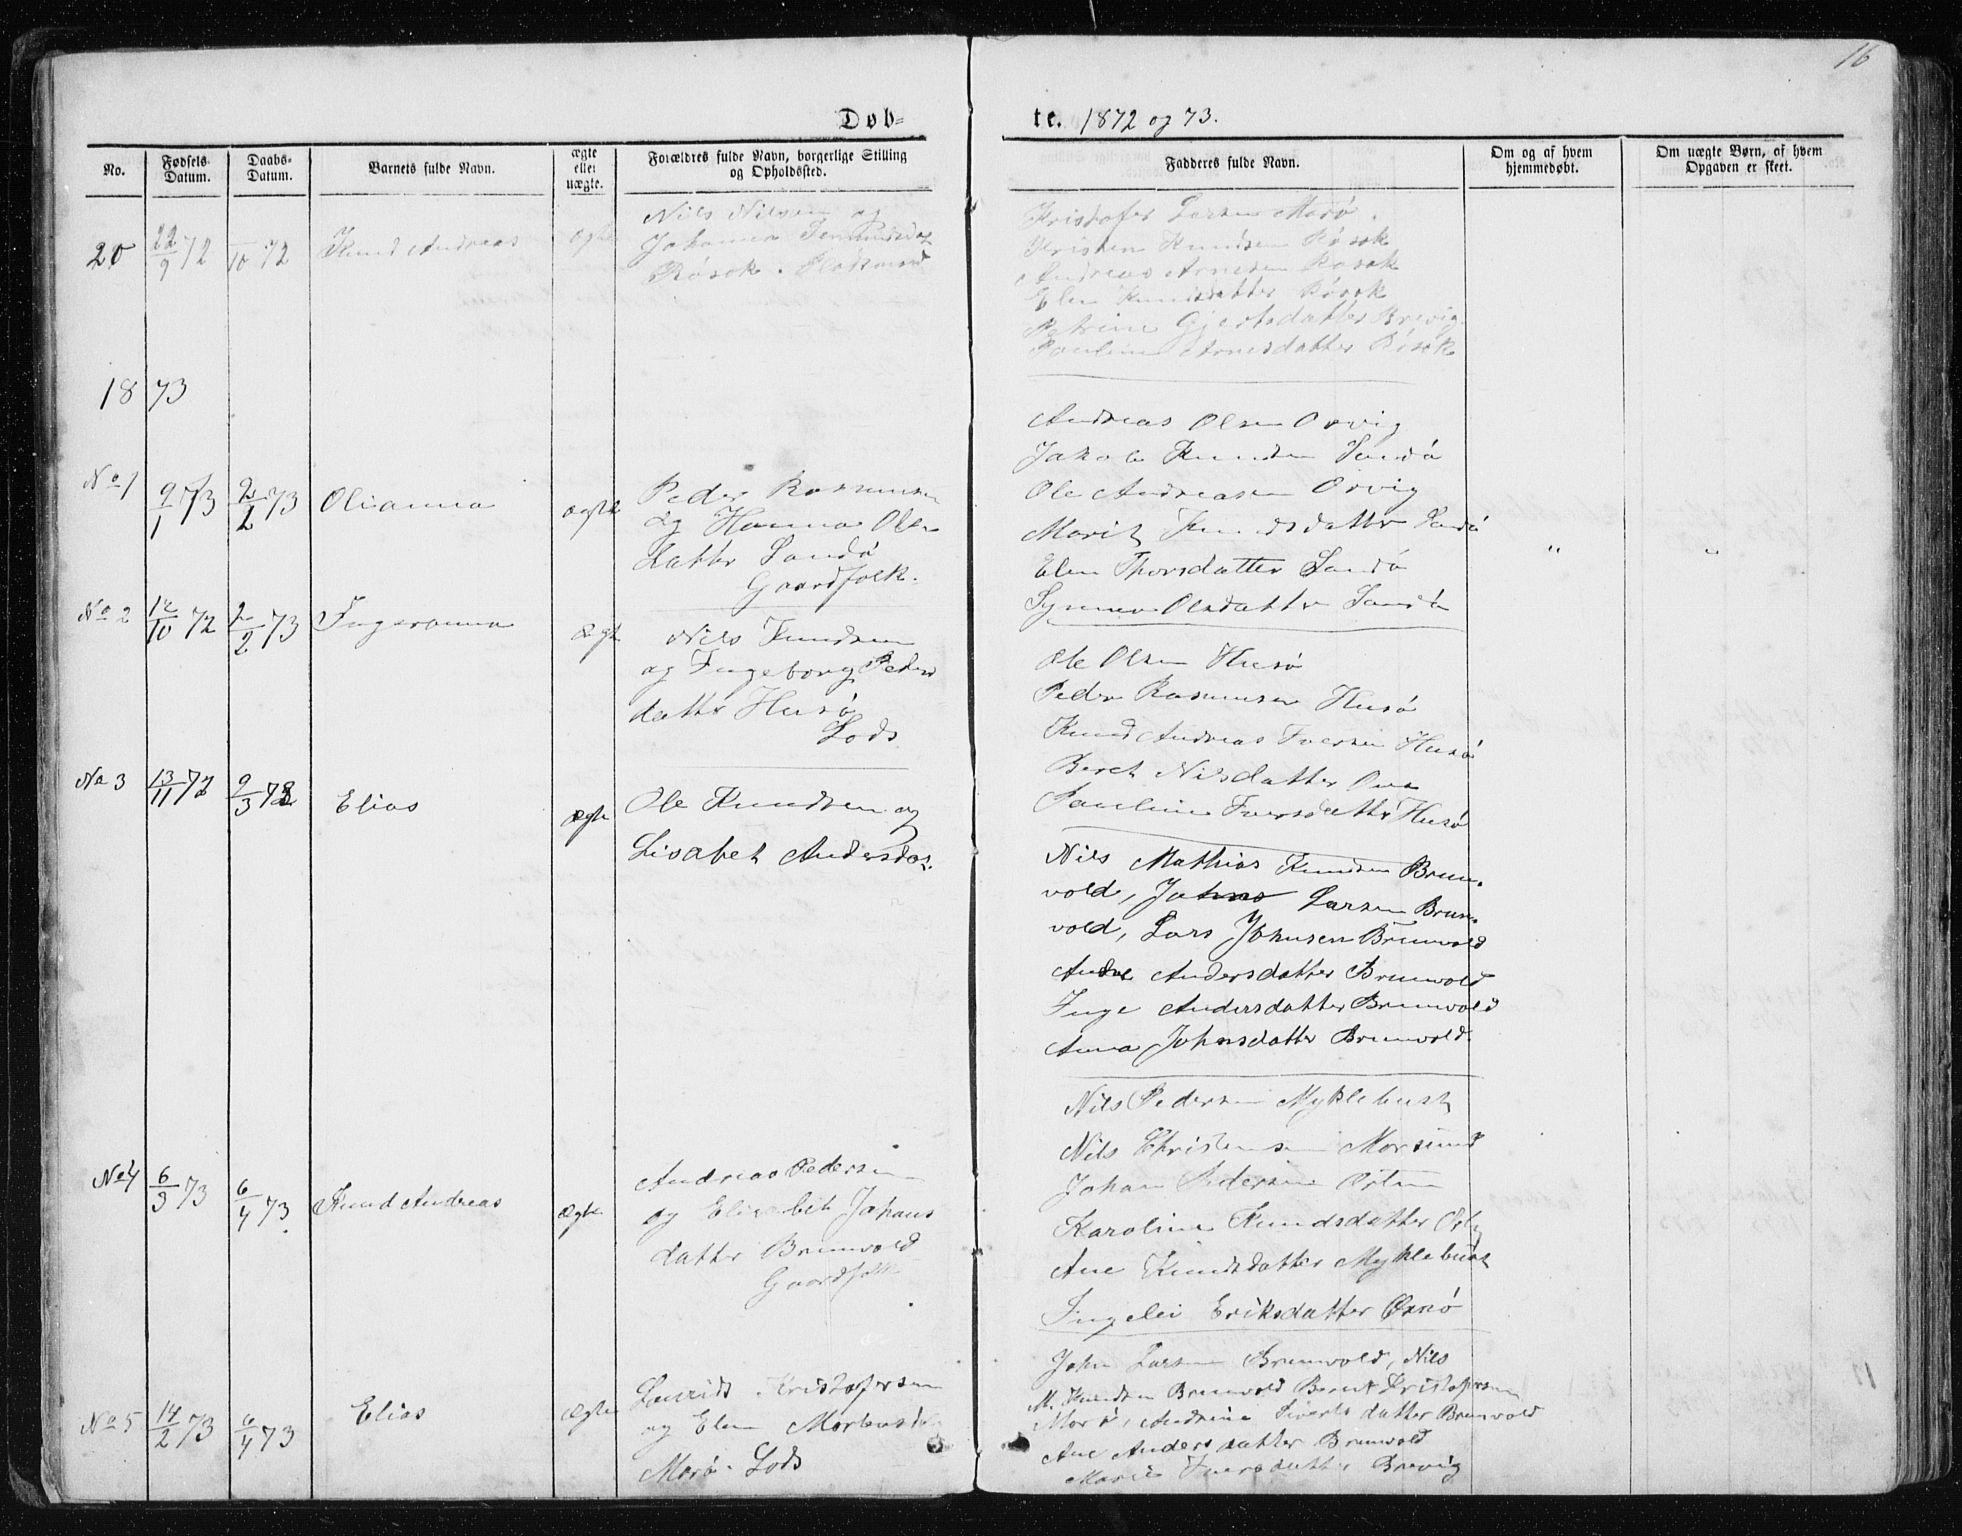 16
Døb= te. 1872 og 73.
No. Fødsels-Datum. Daabs-Datum. Barnets fulde Navn. ægte eller uægte. Forældres fulde Navn, borgerlige Stilling og Opholdssted. Fadderes fulde Navn. Om og af hvem hjemmedøbt. Om uægte Børn, af hvem Opgaven er skeet.
20 22/9 72 /10 72 Knud Andreas ægte
Nils Nilsen og
Johanna
Røsok
Kristofer Larsen Morø.
Kristen Knudsen Røsok
Andreas Arnesen Røsok
Elen Knudsdatter Røsok
Petrine Gjertsdatter Brevig
Pauline Arnesdatter Røsok
1873
No 1 9/1 73 2/2 73 Olianna ægte
Peder Rasmusen
og Hanna Ols
datter Sandø
Gaardfolk.
Andreas Olsen Orvig
Jakob Knudsen Sandø
Ole Andreasen Orvig
Marit Knudsdatter Sandø
Elen Thorsdatter Sandø
Synneve Olsdatter Sandø
" "
No 2 12/10 72 2/2 73 Ingeranna ægte
Nils Knudsen
og Ingeborg Peders
datter Husø
Lods
Ole Olsen Husø
Peder Rasmusen Husø
Knud Andreas Iversen Husø
Beret Nilsdatter
Pauline Iversdatter Husø
No 3 13/11 72 9/3 73 Elias ægte
Ole Knudsen og
Lisabet Andersdat.
Nils Mathias Knudsen Brun-
vold, Johns Larsen Brun-
vold, Lars Johnsen Brunvold
Andersdatter Brunvold
Inge Andersdatter Brunvold
Anna Johnsdatter Brunvold.
No 4 6/3 73 6/4 73 Knud Andreas ægte
Andreas Pedersen
og Elisabet Johans
datter Brunvold
Gaardfolk
Nils Pedersen Myklebust
Nils Christensen Morsund
Johan Pedersen Orten
Karoline Knudsdatter
Ane Knudsdatter Myklebust
Ingelei Eriksdatter
No 5 14/2 73 6/4 73 Elias ægte
Laurids Kristofersen
og Elen Mortensd
Morø. Lods
John Larsen Brunvold, Nils
M. Knudsen Brunvold Bernt Kristofersen
Morø, Andrine Siverts datter Brunvold
Ane Anders datter Brunvold
Marie Iversdatter Brevig